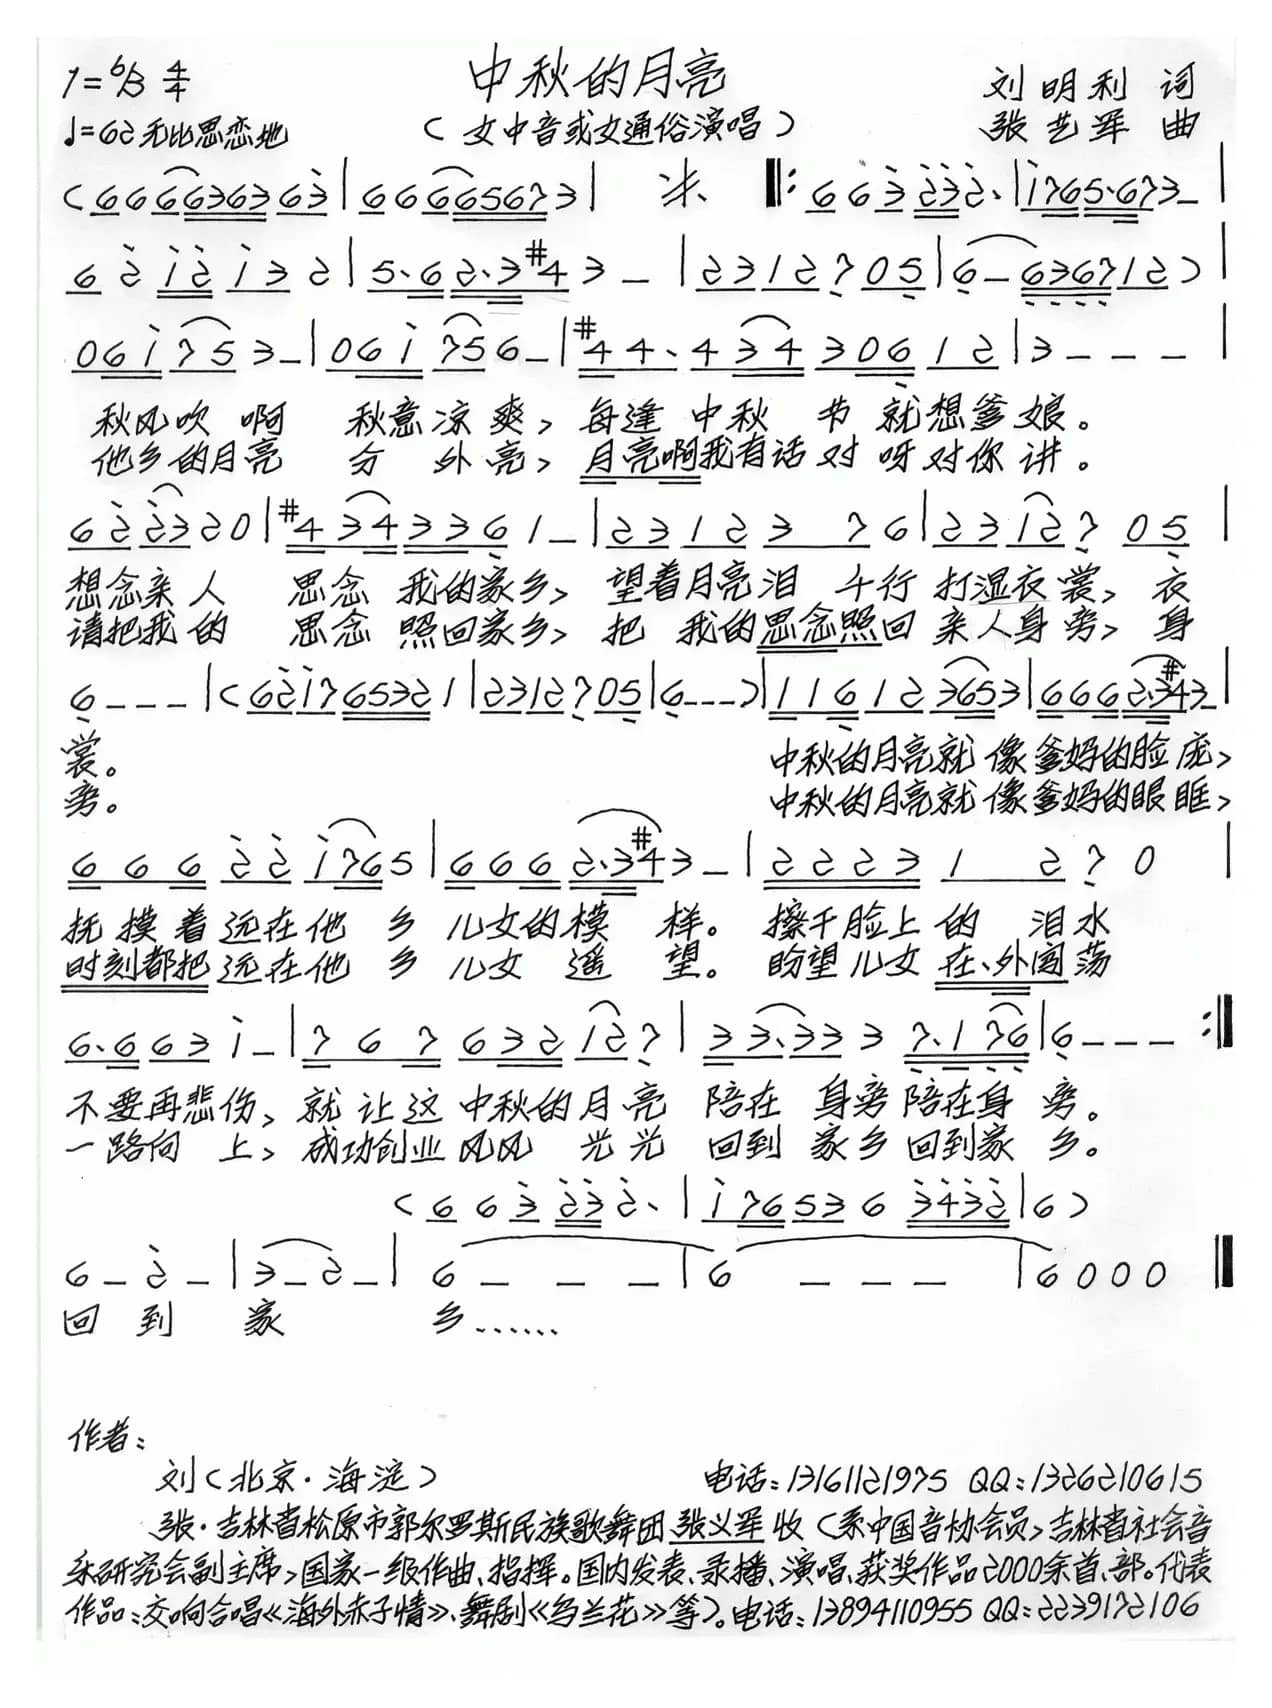 1=♭B 4/4
中秋的月亮
刘明利 词
♩=62 无比思恋地
(女中音或女通俗演唱)
张艺军 曲
(6 6 6 6363 63|6 6 6 65673| 氺 ‖: 6 6 3 232·|1765·673-|
6 2 12 13 2|5·62·3#43-|2312705|6-636712)
061753-|061756-|#44·4343061 2|3---|
秋风吹啊 秋意凉爽,每逢中秋节就想爹娘。
他乡的月亮 分外亮,月亮啊我有话对呀对你讲。
622320|#4343361-|23123 76|2312705|
想念亲人 思念我的家乡,望着月亮泪千行打湿衣裳,衣
请把我的 思念照回家乡,把我的思念照回亲人身旁,身
6---|(621765321|2312705|6---)|116123653|6662·3#43-|
裳。 中秋的月亮就像爹妈的脸庞,
旁。 中秋的月亮就像爹妈的眼眶,
666221765|6662·3#43-|22231 270|
抚摸着远在他乡儿女的模样。擦干脸上的泪水
时刻都把远在他乡儿女遥望。盼望儿女在、外闯荡
6·6631-|767632127|33·3337·176|6---:‖
不要再悲伤,就让这中秋的月亮陪在身旁陪在身旁。
一路向上,成功创业风风光光回到家乡回到家乡。
(663232·|1765363432|6)
6-2-|3-2-|6---|6---|6000‖
回到家乡……
作者:
刘(北京·海淀) 电话:13161121975 QQ:1326210615
张·吉林省松原市郭尔罗斯民族歌舞团张义军收(系中国音协会员,吉林省社会音
乐研究会副主席,国家一级作曲、指挥。国内发表、录播、演唱、获奖作品2000余首、部。代表
作品:交响合唱《海外赤子情》、舞剧《乌兰花》等)。电话:13894110955 QQ:2239172106